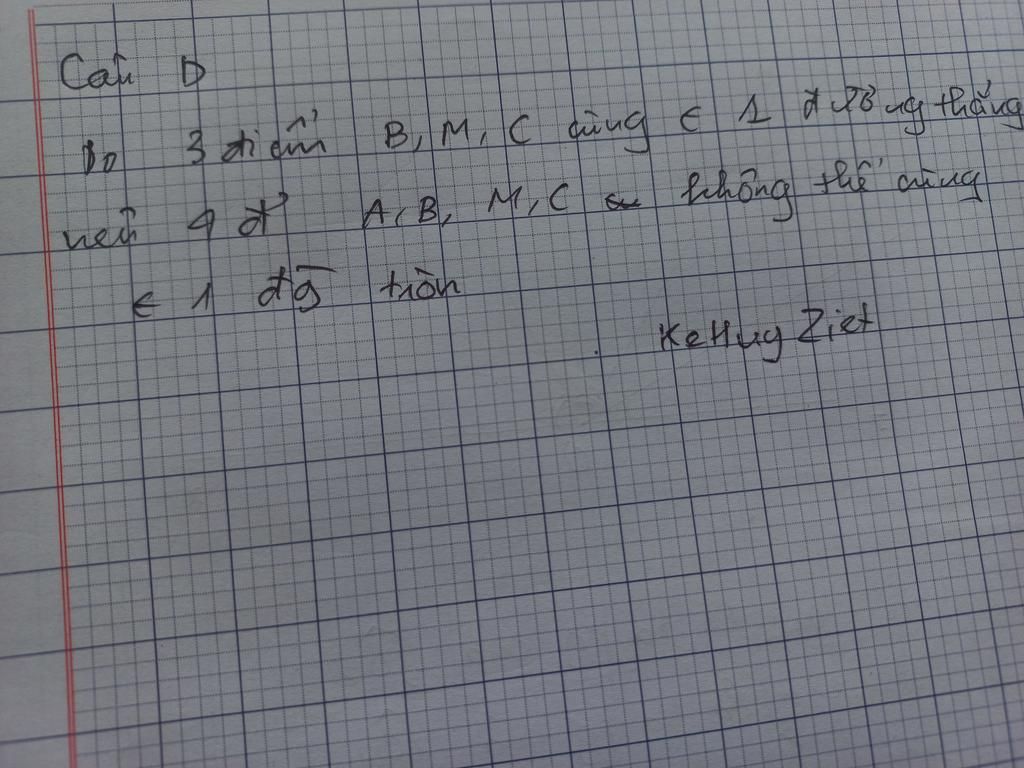 Câu D
Do 3 điểm B, M, C cùng ∈ 1 đường thẳng
nên 4 đ' A, B, M, C không thể cùng
∈ 1 đg tròn
KeHugZiet